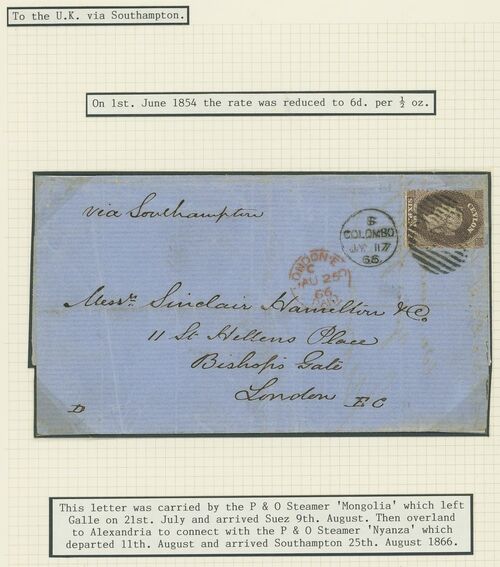 To the U.K. via Southampton.
On 1st. June 1854 the rate was reduced to 6d. per ½ oz.
via Southampton
SIXPENCE
CEYLON
COLOMBO
66
LONDON E C
AU 25
66
PAID
Messrs. Sinclair Hamilton & Co.
11 St Hellens Place
Bishops Gate
London E C
This letter was carried by the P & O Steamer 'Mongolia' which left
Galle on 21st. July and arrived Suez 9th. August. Then overland
to Alexandria to connect with the P & O Steamer 'Nyanza' which
departed 11th. August and arrived Southampton 25th. August 1866.